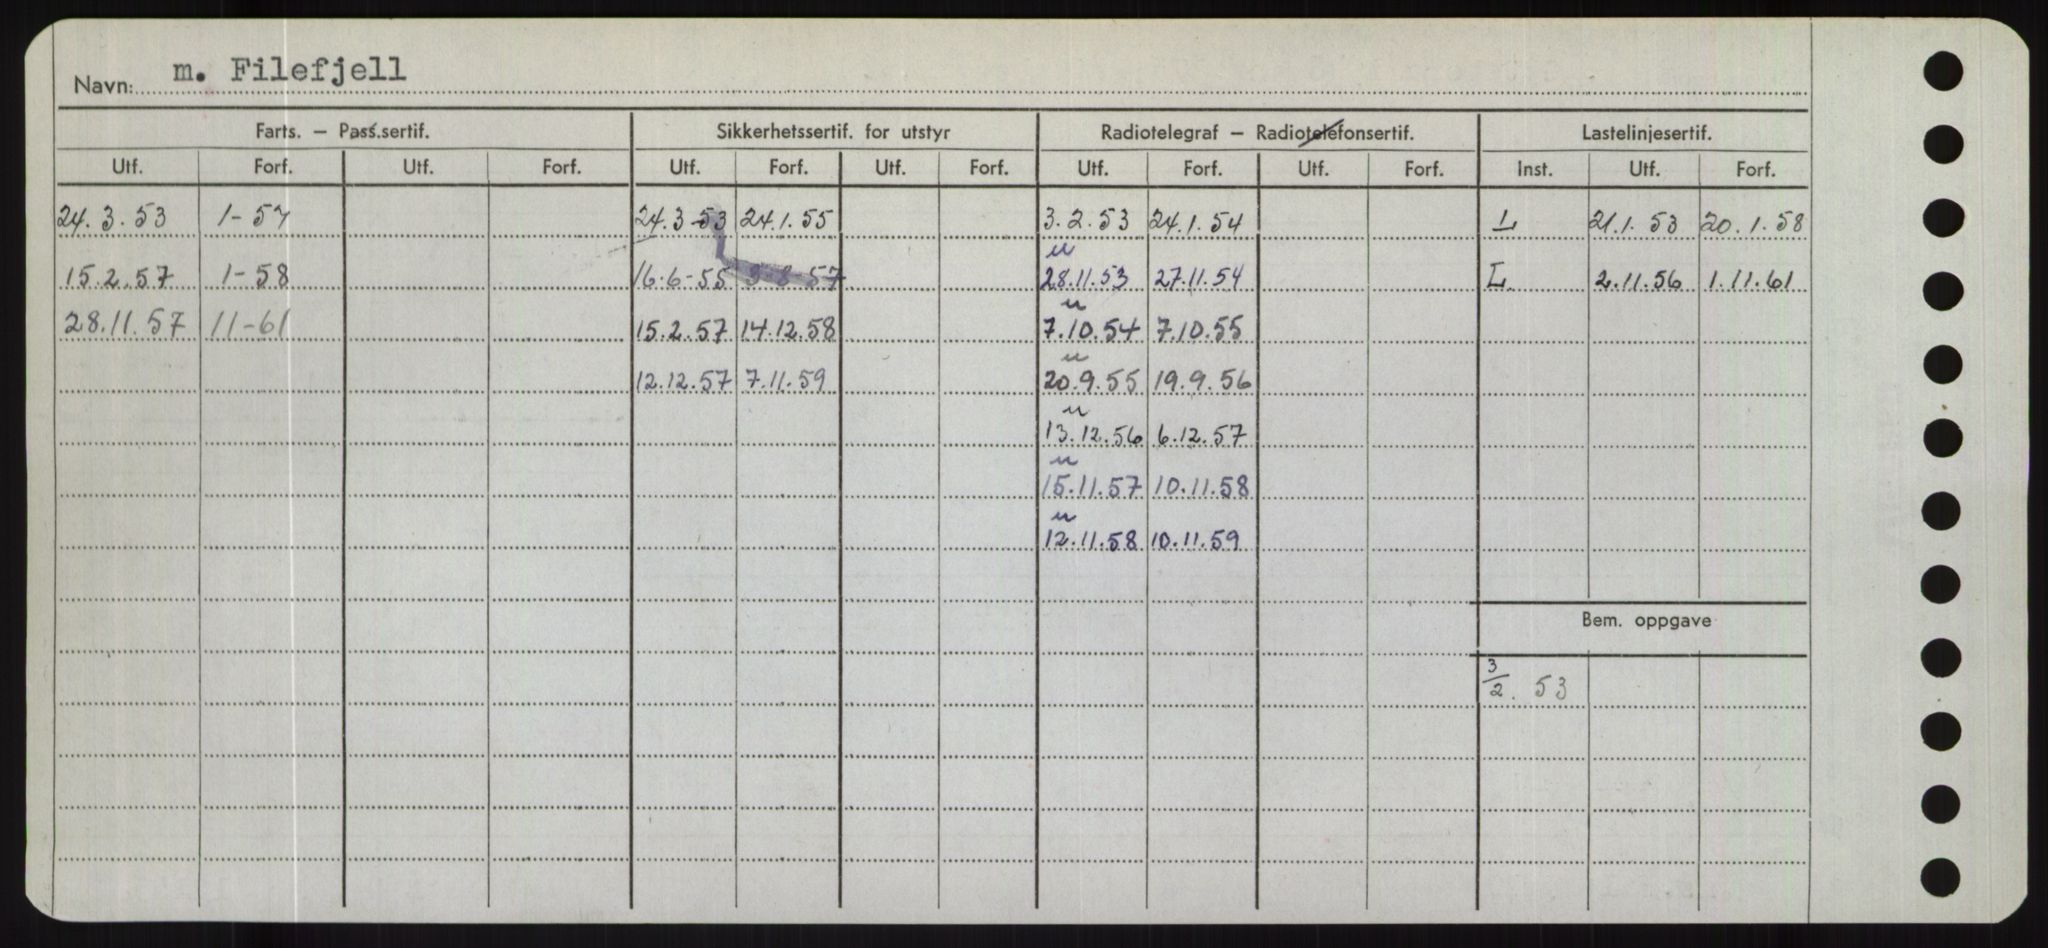 Navn: m. Filefjell
Farts. – Pass.sertif. Sikkerhetssertif. for utstyr Radiotelegraf – Radiotelefonsertif. Lastelinjesertif.
Utf. Forf. Utf. Forf. Utf. Forf. Utf. Forf. Utf. Forf. Utf. Forf. Inst. Utf. Forf.
24.3.53 1-57 24.3-53 24.1.55 3.2.53 24.1.54 L 21.1.53 20.1.58
u
15.2.57 1-58 16-6-55 3-8-57 28.11.53 27.11.54 L 2.11.56 1.11.61
u
28.11.57 11-61 15.2.57 14.12.58 7.10.54 7.10.55
u
12.12.57 7.11.59 20.9.55 19.9.56
u
13.12.56 6.12.57
u
15.11.57 10.11.58
u
12.11.58 10.11.59
Bem. oppgave
3/2. 53